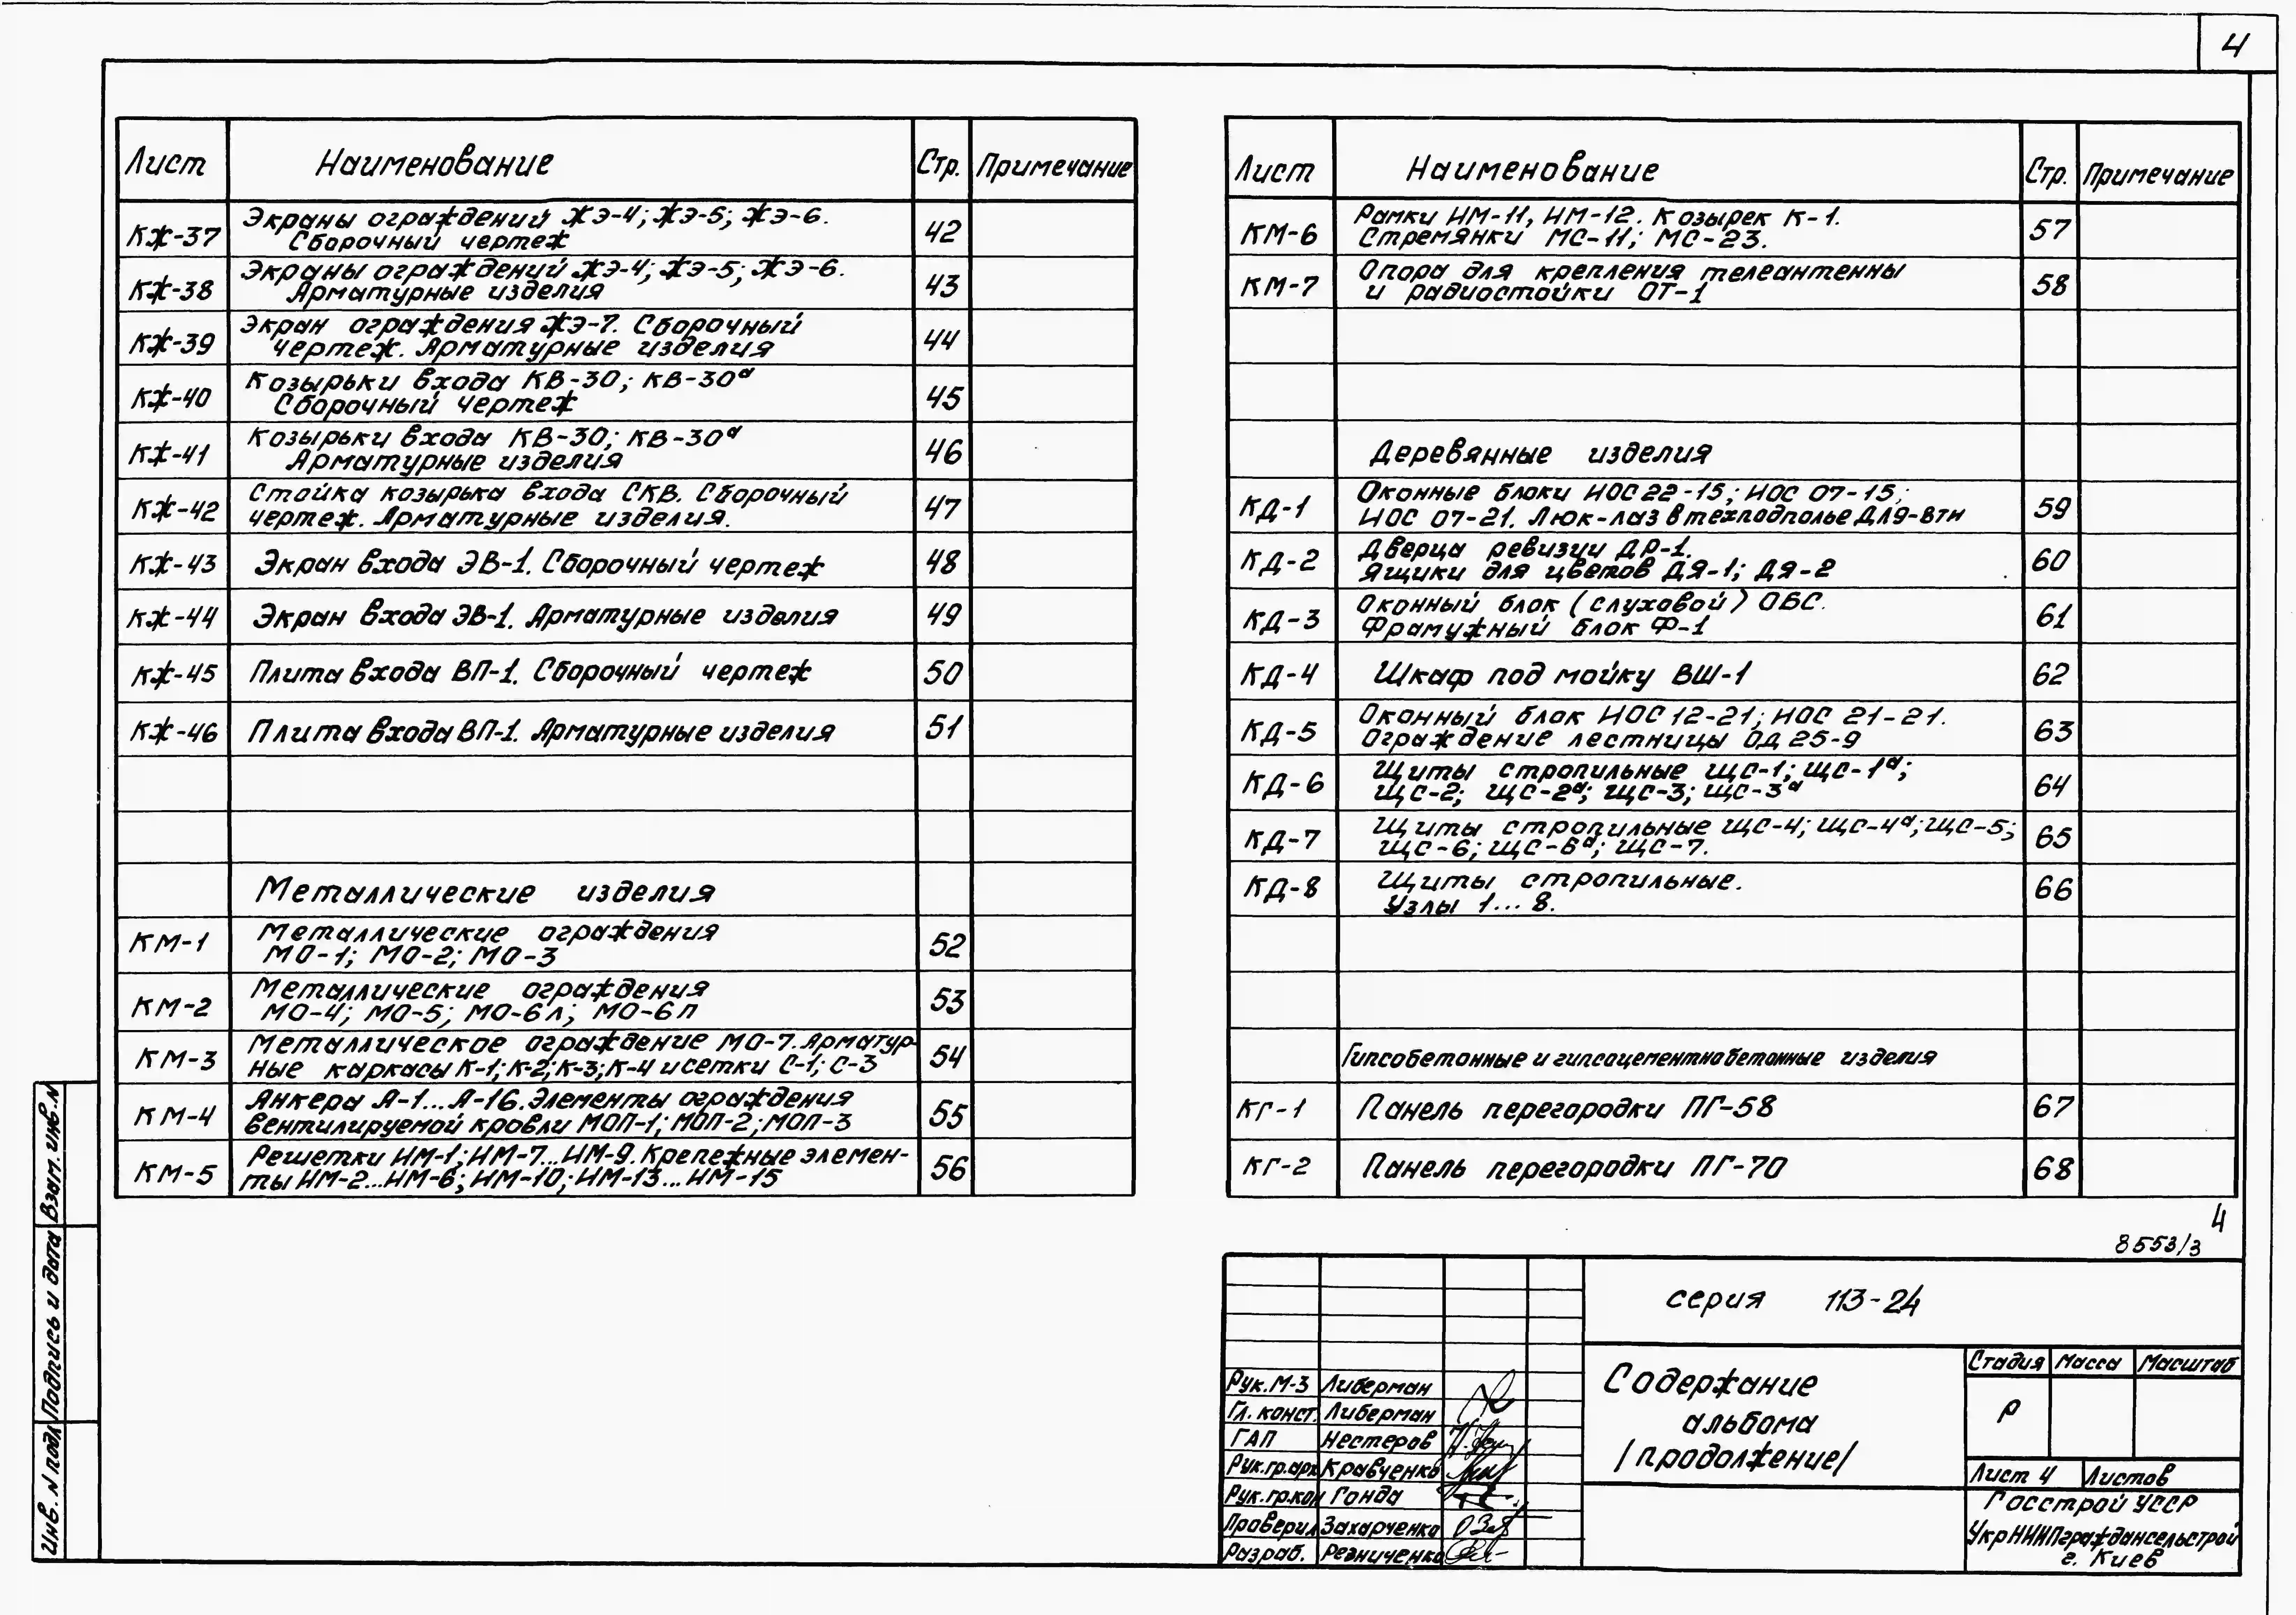 4
Лист Наименование Стр. Примечание
КЖ-37 Экраны ограждений ЖЭ-4; ЖЭ-5; ЖЭ-6.
Сборочный чертеж 42
КЖ-38 Экраны ограждений ЖЭ-4; ЖЭ-5; ЖЭ-6.
Арматурные изделия 43
КЖ-39 Экран ограждения ЖЭ-7. Сборочный
чертеж. Арматурные изделия 44
КЖ-40 Козырьки входа КВ-30; КВ-30а
Сборочный чертеж 45
КЖ-41 Козырьки входа КВ-30; КВ-30а
Арматурные изделия 46
КЖ-42 Стойка козырька входа СКВ. Сборочный
чертеж. Арматурные изделия. 47
КЖ-43 Экран входа ЭВ-1. Сборочный чертеж 48
КЖ-44 Экран входа ЭВ-1. Арматурные изделия 49
КЖ-45 Плита входа ВП-1. Сборочный чертеж 50
КЖ-46 Плита входа ВП-1. Арматурные изделия 51
Металлические изделия
КМ-1 Металлические ограждения
МО-1; МО-2; МО-3 52
КМ-2 Металлические ограждения
МО-4; МО-5; МО-6л; МО-6п 53
КМ-3 Металлическое ограждение МО-7. Арматур-
ные каркасы К-1; К-2; К-3; К-4 и сетки С-1; С-3 54
КМ-4 Анкера А-1...А-16. Элементы ограждения
вентилируемой кровли МОП-1; МОП-2; МОП-3 55
КМ-5 Решетки ИМ-1; ИМ-7...ИМ-9. Крепежные элемен-
ты ИМ-2...ИМ-6; ИМ-10; ИМ-13...ИМ-15 56
Лист Наименование Стр. Примечание
КМ-6 Рамки ИМ-11, ИМ-12. Козырек К-1.
Стремянки МС-11; МС-23. 57
КМ-7 Опора для крепления телеантенны
и радиостойки ОТ-1 58
Деревянные изделия
КД-1 Оконные блоки НОС 22-15; НОС 07-15;
НОС 07-21. Люк-лаз в техподполье ДЛ9-8тн 59
КД-2 Дверца ревизии ДР-1.
Ящики для цветов ДЯ-1; ДЯ-2 60
КД-3 Оконный блок (слуховой) ОБС.
Фрамужный блок Ф-1 61
КД-4 Шкаф под мойку ВШ-1 62
КД-5 Оконный блок НОС 12-21; НОС 21-21.
Ограждение лестницы ОД 25-9 63
КД-6 Щиты стропильные ЩС-1; ЩС-1а;
ЩС-2; ЩС-2а; ЩС-3; ЩС-3а 64
КД-7 Щиты стропильные ЩС-4; ЩС-4а; ЩС-5;
ЩС-6; ЩС-6а; ЩС-7. 65
КД-8 Щиты стропильные.
Узлы 1...8. 66
Гипсобетонные и гипсоцементнобетонные изделия
КГ-1 Панель перегородки ПГ-58 67
КГ-2 Панель перегородки ПГ-70 68
4
8553/3
серия 113-24
Содержание
альбома
/продолжение/
Стадия Масса Масштаб
Р
Лист 4 Листов
Госстрой УССР
УкрНИИПграждансельстрой
г. Киев
Рук. М-3 Либерман
Гл. конст. Либерман
ГАП Нестеров
Рук.гр.арх Кравченко
Рук.гр.кон Гонда
Проверил Захарченко
Разраб. Резниченко
Инв. N подл Подпись и дата Взам. инв. N